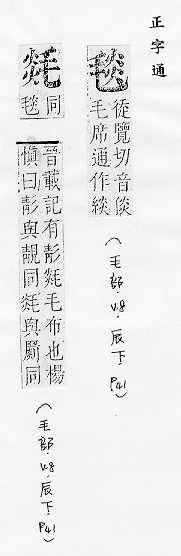 正字通
毯
徒覽切音倓
毛席通作緂
(毛部,V.8,辰下,P.41)
㲜
同
毯
晉載記有㲜毛布也楊
慎曰與靚同㲜與罽同
(毛部,V.8,辰下,P.41)